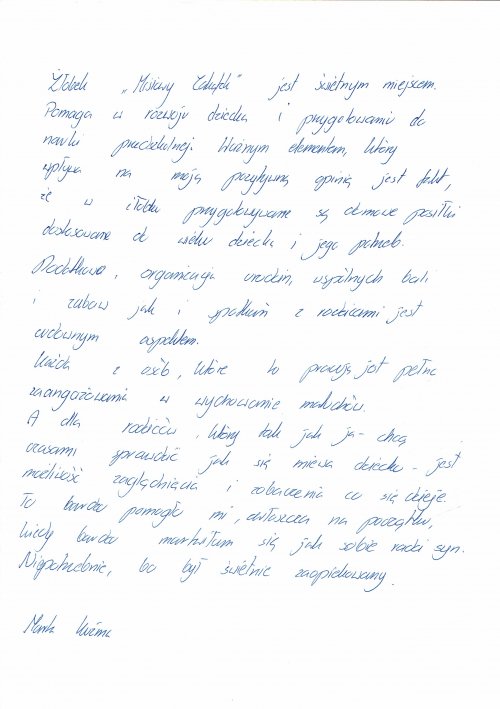 Żłobek „Misiowy Zakątek" jest świetnym miejscem.
Pomaga w rozwoju dziecka i przygotowaniu do
nauki przedszkolnej. Ważnym elementem, który
wpływa na moją pozytywną opinię jest fakt,
że w żłobku przygotowywane są domowe posiłki
dostosowane do wieku dziecka i jego potrzeb.
Dodatkowo, organizacja urodzin, wspólnych bali
i zabaw jak i spotkań z rodzicami jest
cudownym aspektem.
Każda z osób, które tu pracują jest pełna
zaangażowania w wychowanie maluchów.
A dla rodziców, który tak jak ja - chcą
czasami sprawdzić jak się miewa dziecko - jest
możliwość zaglądnięcia i zobaczenia co się dzieje.
To bardzo pomogło mi, zwłaszcza na początku,
kiedy bardzo martwiłam się jak sobie radzi syn.
Niepotrzebnie, bo był świetnie zaopiekowany.